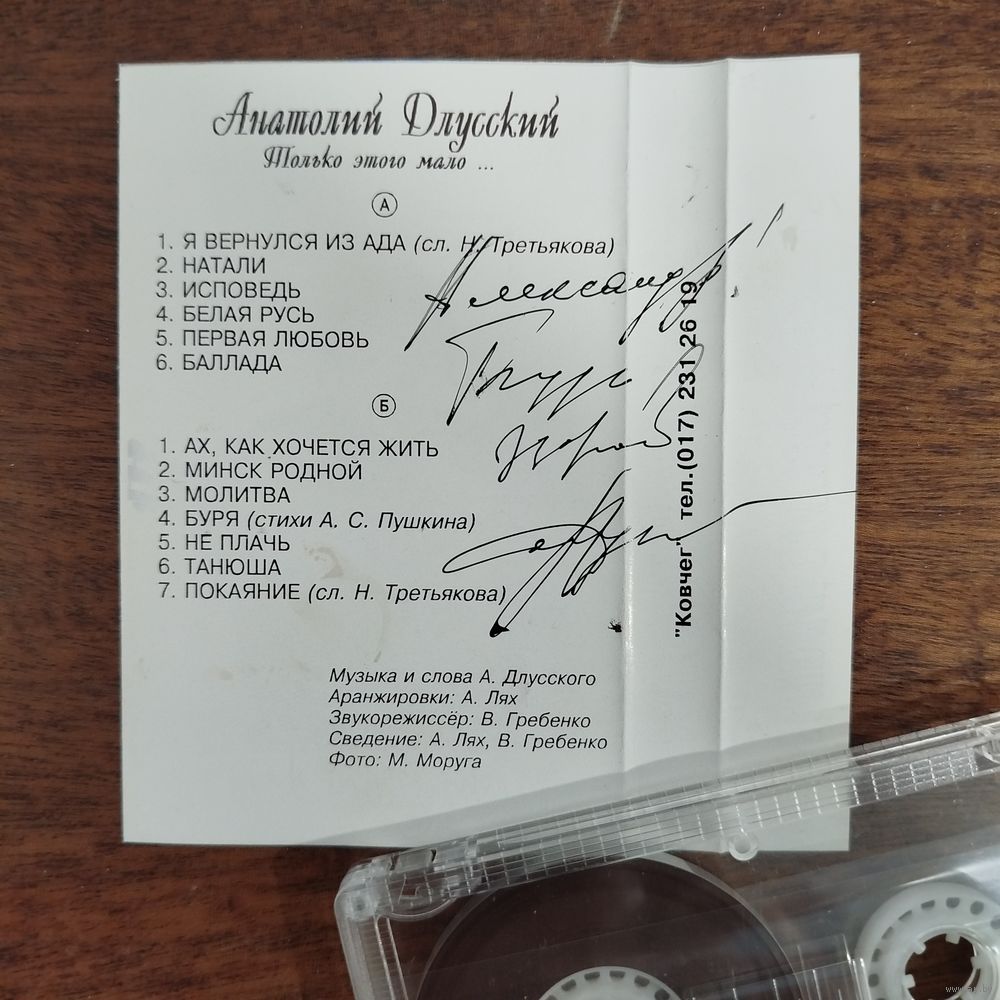 Анатолий Длусский
Только этого мало ...
А
1. Я ВЕРНУЛСЯ ИЗ АДА (сл. Н. Третьякова)
2. НАТАЛИ
3. ИСПОВЕДЬ
4. БЕЛАЯ РУСЬ
5. ПЕРВАЯ ЛЮБОВЬ
6. БАЛЛАДА
Б
1. АХ, КАК ХОЧЕТСЯ ЖИТЬ
2. МИНСК РОДНОЙ
3. МОЛИТВА
4. БУРЯ (стихи А. С. Пушкина)
5. НЕ ПЛАЧЬ
6. ТАНЮША
7. ПОКАЯНИЕ (сл. Н. Третьякова)
Музыка и слова А. Длусского
Аранжировки: А. Лях
Звукорежиссёр: В. Гребенко
Сведение: А. Лях, В. Гребенко
Фото: М. Моруга
Александр!
"Ковчег" тел.(017) 231 26 19